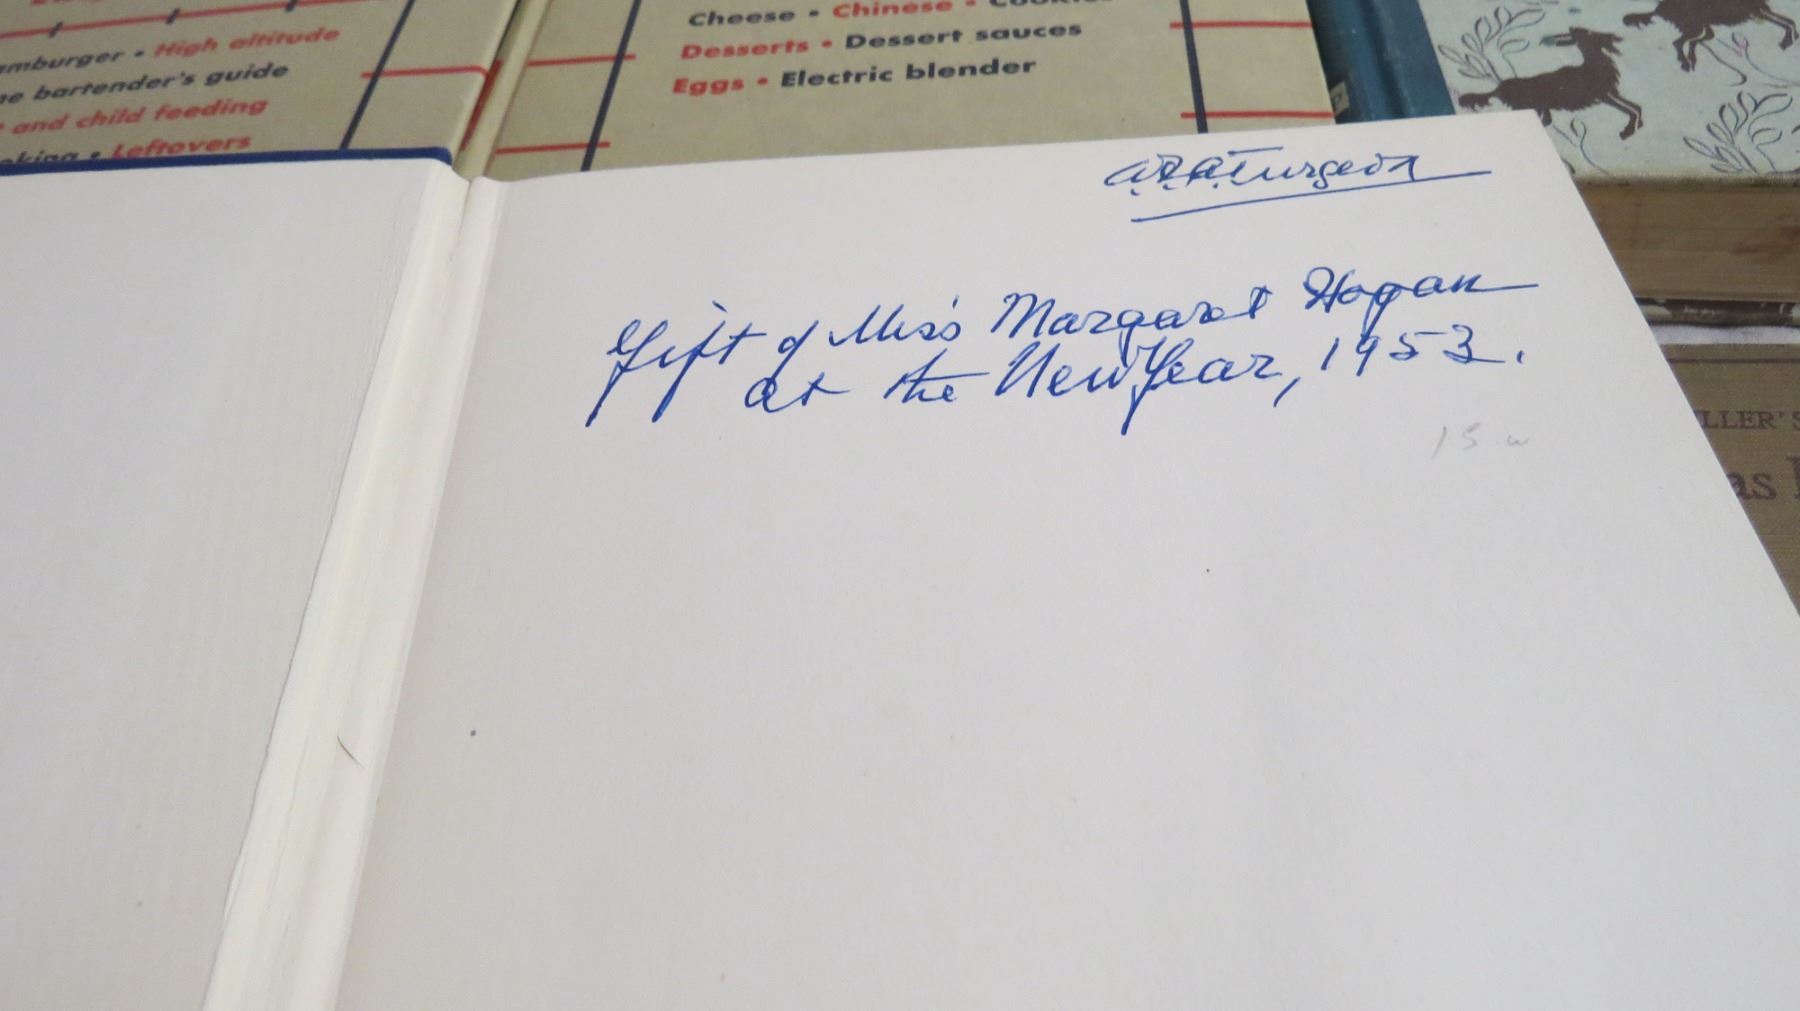 Cheese • Chinese •
amburger • High altitude
Desserts • Dessert sauces
he bartender's guide
Eggs • Electric blender
and child feeding
oking • Leftovers
Turgeon
Gift of Miss Margaret Hogan
at the New Year, 1953.
LLER'S
as